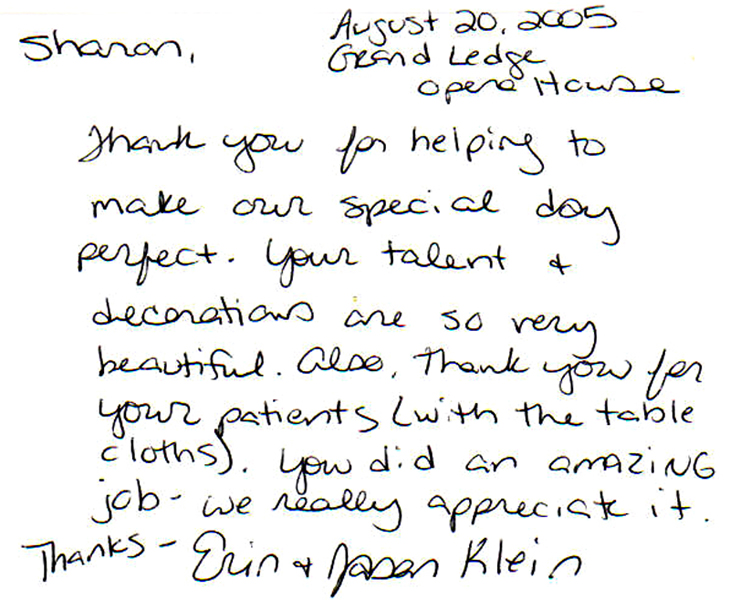 August 20, 2005
Sharon,
Grand Ledge
Opera House
Thank you for helping to
make our special day
perfect. Your talent +
decorations are so very
beautiful. Also, Thank you for
your patients (with the table
cloths). You did an amazing
job - we really appreciate it.
Thanks - Erin + Jason Klein